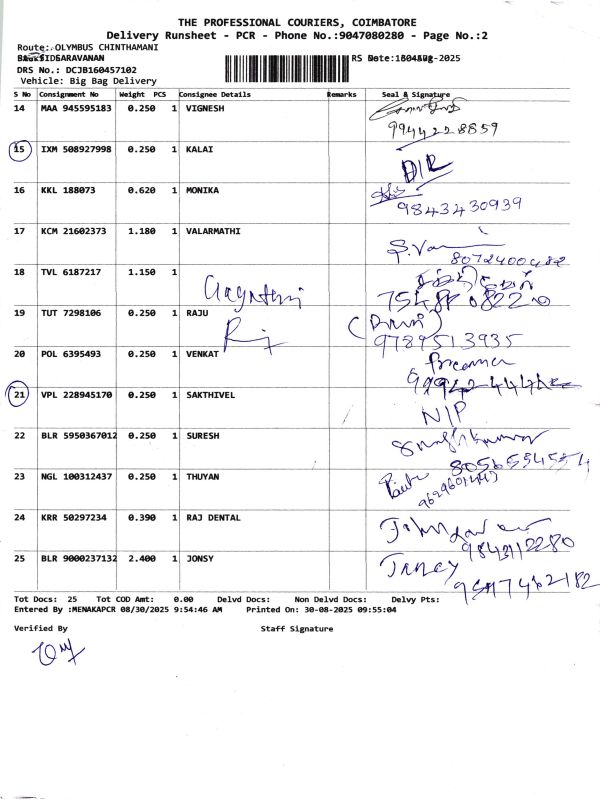 THE PROFESSIONAL COURIERS, COIMBATORE
Delivery Runsheet - PCR - Phone No.:9047080280 - Page No.:2
Route: OLYMBUS CHINTHAMANI
SARAVANAN
RS Date: -2025
DRS No.: DCJB160457102
Vehicle: Big Bag Delivery
S No Consignment No Weight PCS Consignee Details Remarks Seal & Signature
14 MAA 945595183 0.250 1 VIGNESH
9944228859
15 IXM 508927998 0.250 1 KALAI
D/L
16 KKL 188073 0.620 1 MONIKA
9843430939
17 KCM 21602373 1.180 1 VALARMATHI
8072400482
18 TVL 6187217 1.150 1
Gayathri
19 TUT 7298106 0.250 1 RAJU
9789513935
20 POL 6395493 0.250 1 VENKAT
21 VPL 228945170 0.250 1 SAKTHIVEL
N/P
22 BLR 5950367012 0.250 1 SURESH
23 NGL 100312437 0.250 1 THUYAN
24 KRR 50297234 0.390 1 RAJ DENTAL
25 BLR 9000237132 2.400 1 JONSY
Tot Docs: 25 Tot COD Amt: 0.00 Delvd Docs: Non Delvd Docs: Delvy Pts:
Entered By :MENAKAPCR 08/30/2025 9:54:46 AM Printed On: 30-08-2025 09:55:04
Verified By Staff Signature